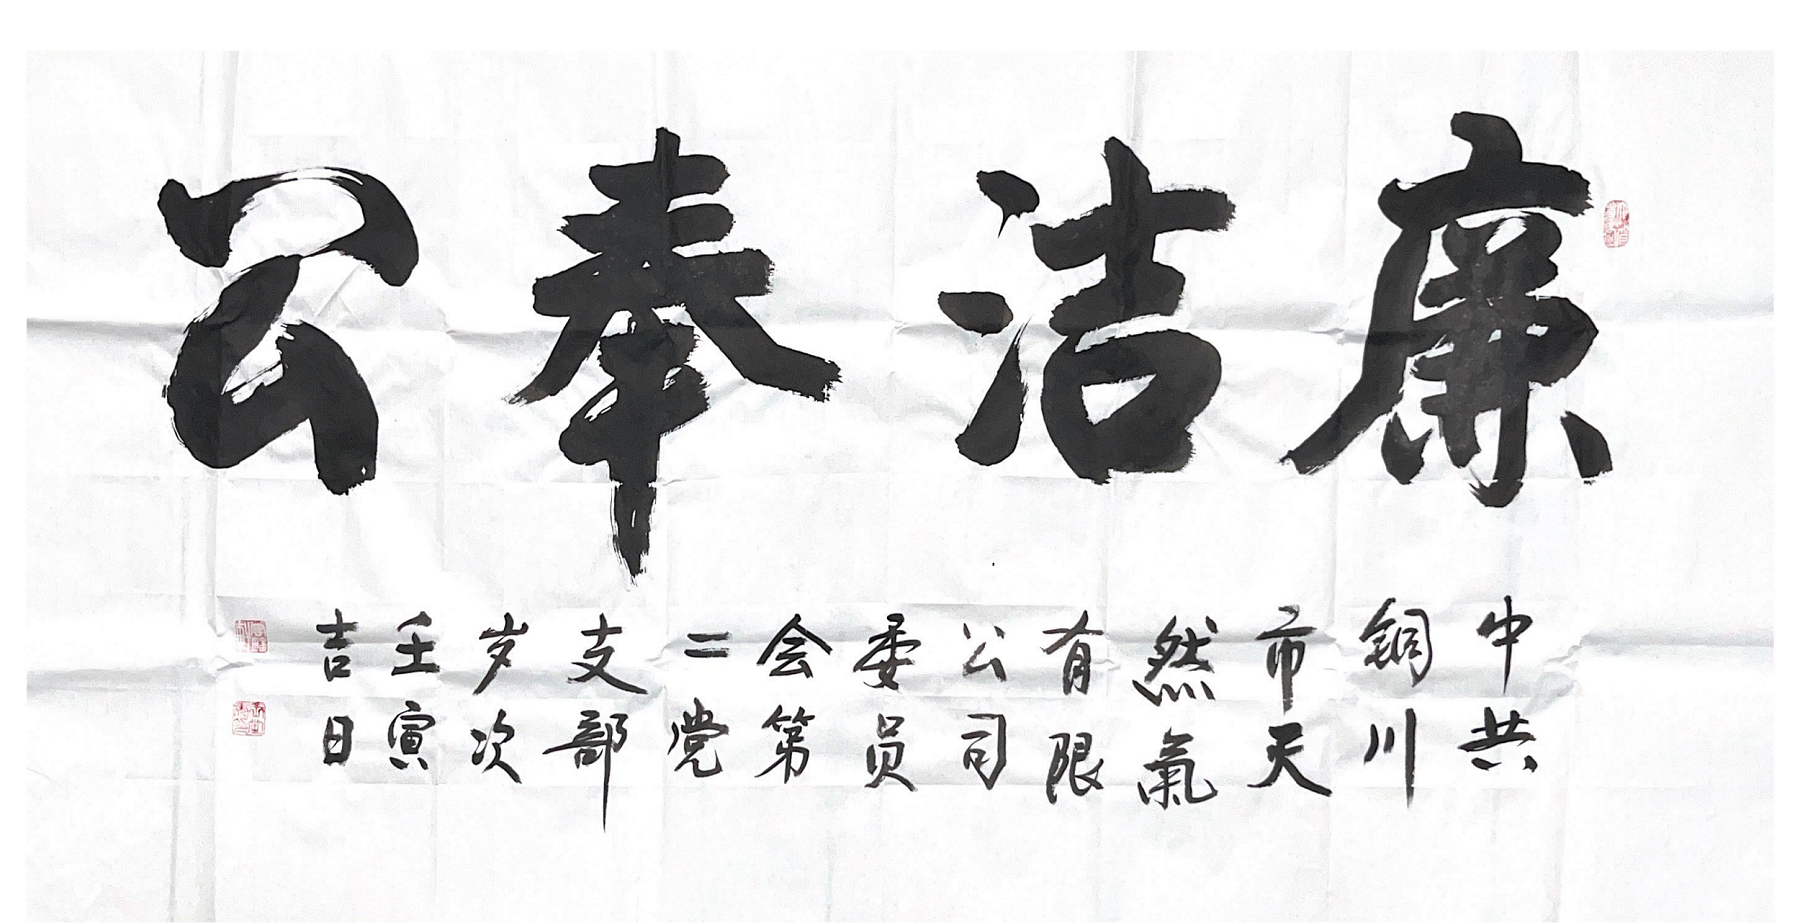 廉洁奉公
中共
铜川
市天
然氣
有限
公司
委员
会第
二党
支部
岁次
壬寅
吉日